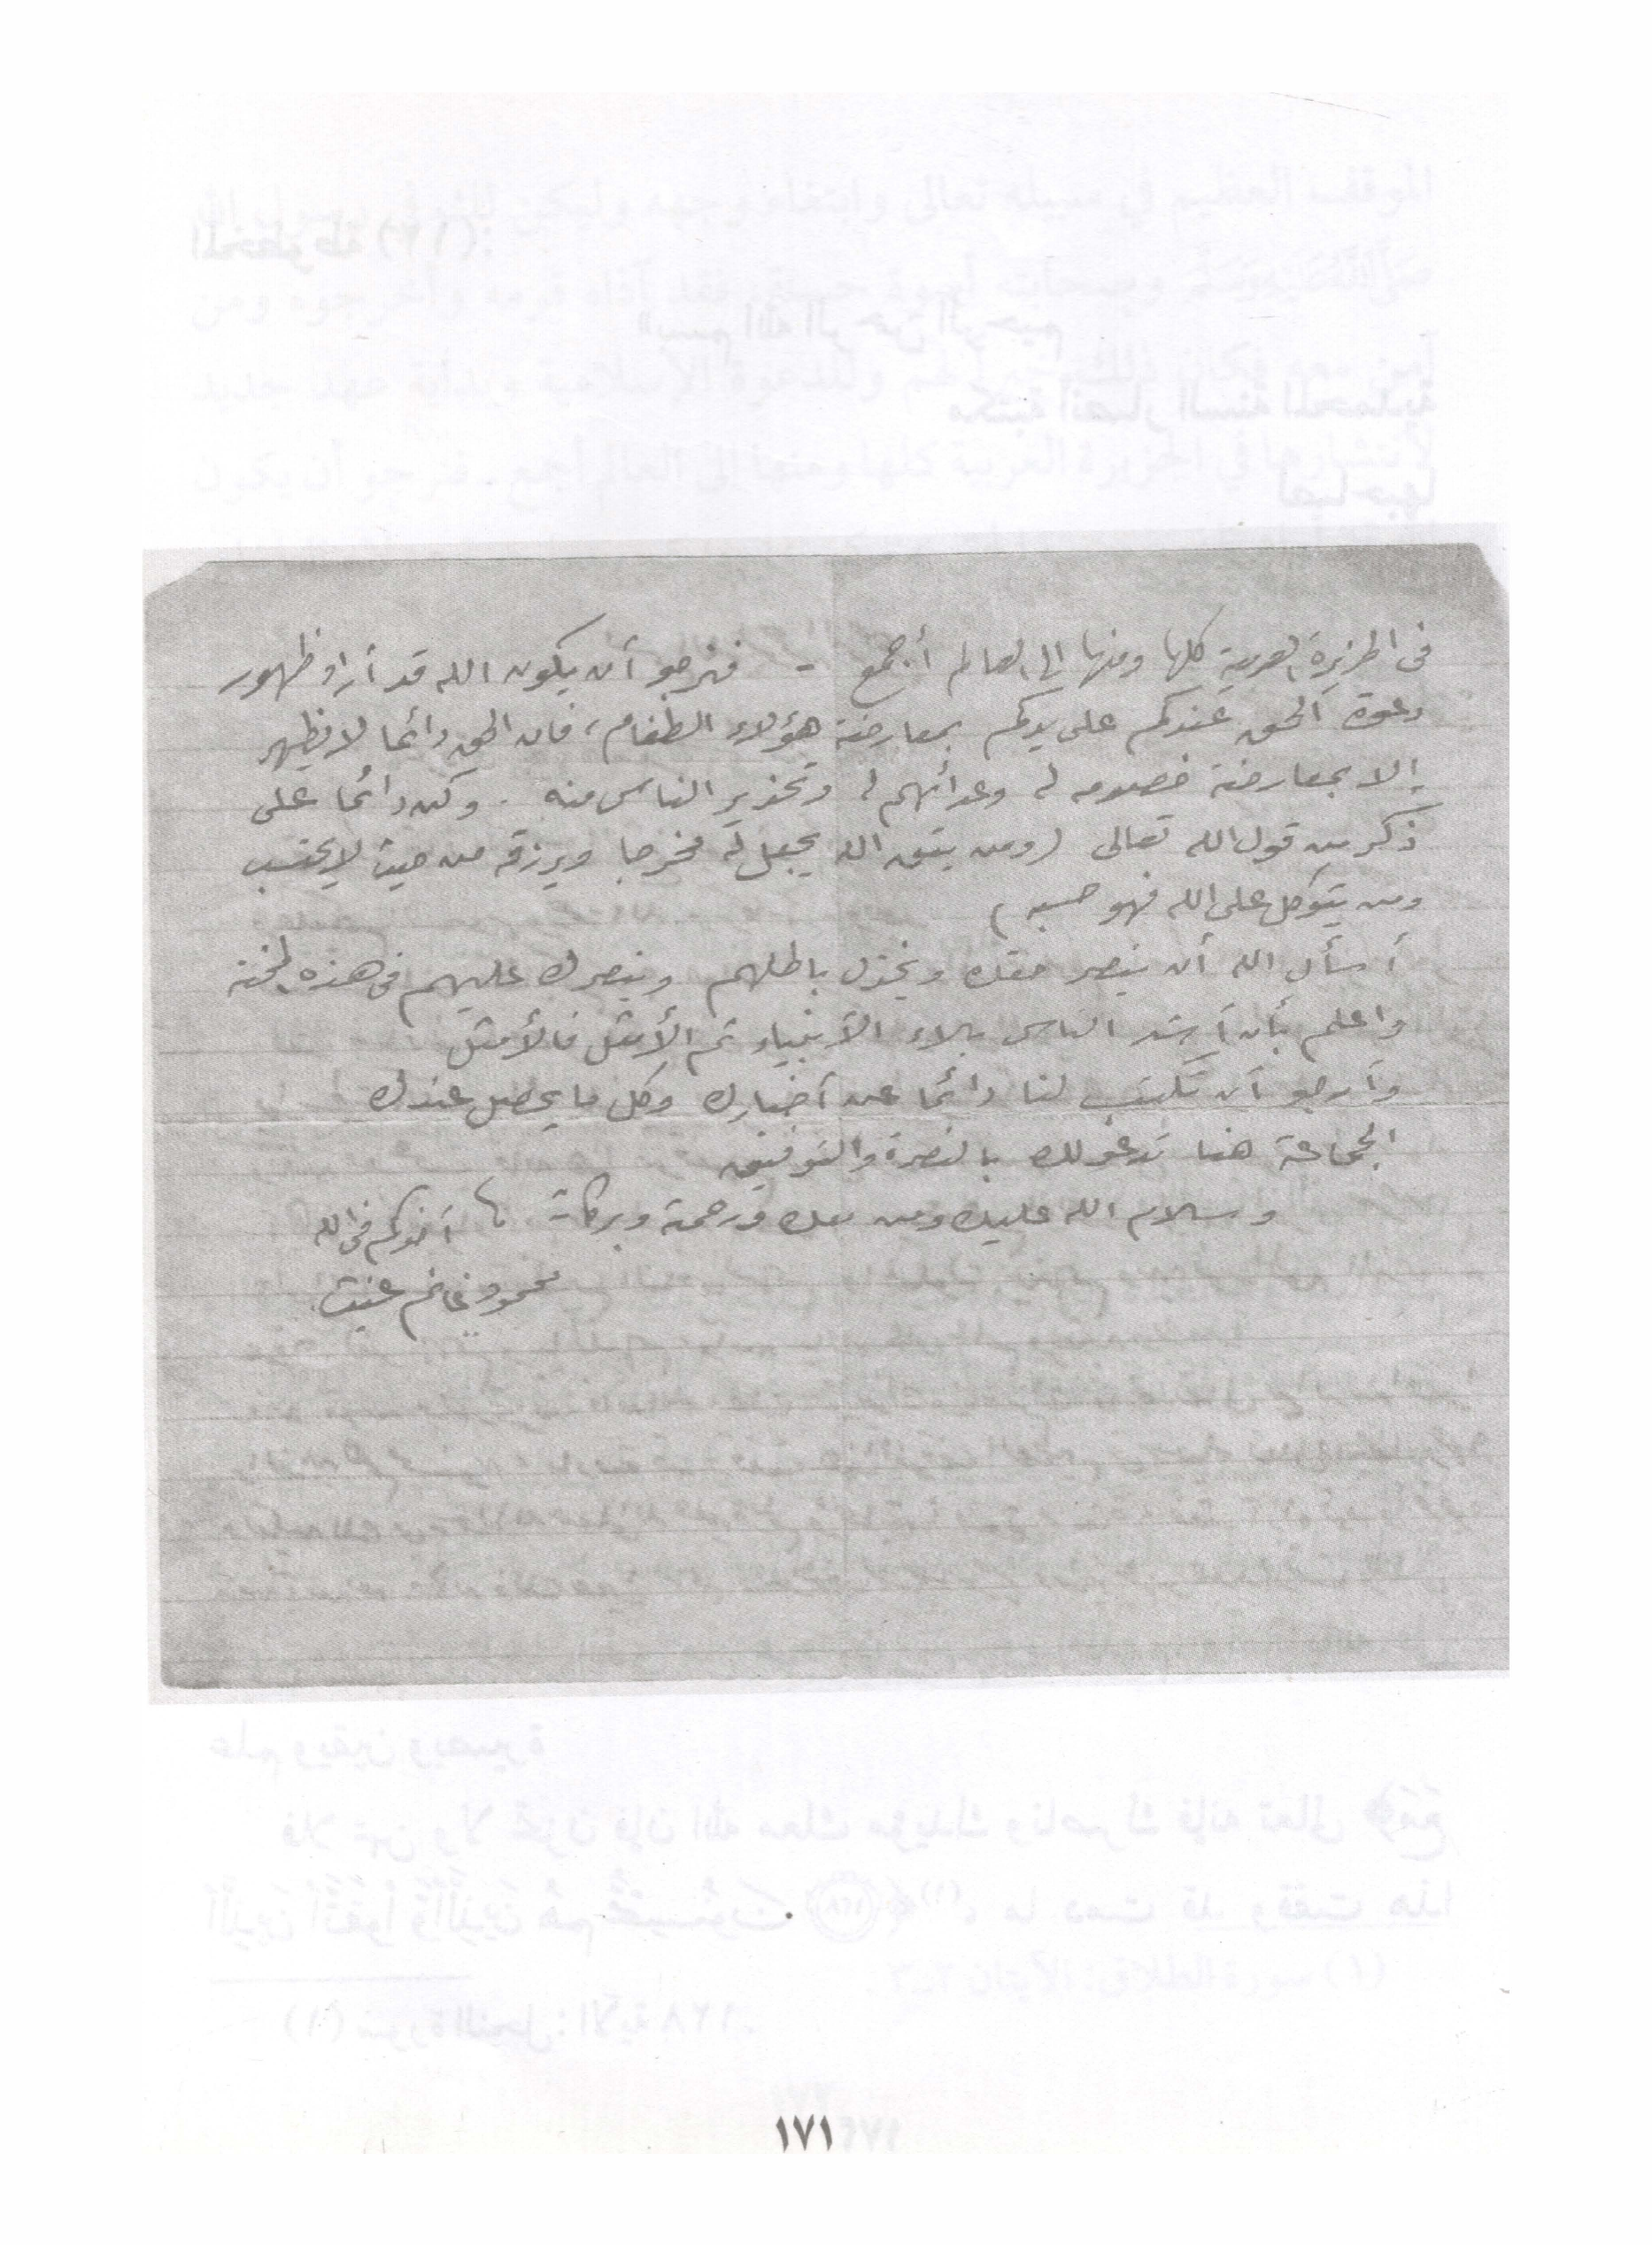 في الجزيرة العربية كلها ومنها إلى العالم أجمع - فنرجو أن يكون الله قد أراد ظهور
دعوة الحق عندكم على يدكم بمعارضة هؤلاء الطغام، فإن الحق دائما لا يظهر
إلا بمعارضة خصومه له وعدائهم له وتحذير الناس منه . وكن دائما على
ذكر من قول الله تعالى (ومن يتق الله يجعل له مخرجا ويرزقه من حيث لا يحتسب
ومن يتوكل على الله فهو حسبه)
أسأل الله أن ينصر حقك ويخذل باطلهم وينصرك عليهم في هذه المحنة
واعلم بأن أشد الناس بلاء الأنبياء ثم الأمثل فالأمثل
وأرجو أن تكتب لنا دائما عن أخبارك وكل ما يحصل عندك
الجماعة هنا تدعو لك بالنصرة والتوفيق
وسلام الله عليك ومن معك ورحمته وبركاته أخوكم في الله
محمود غانم غيث
١٧١